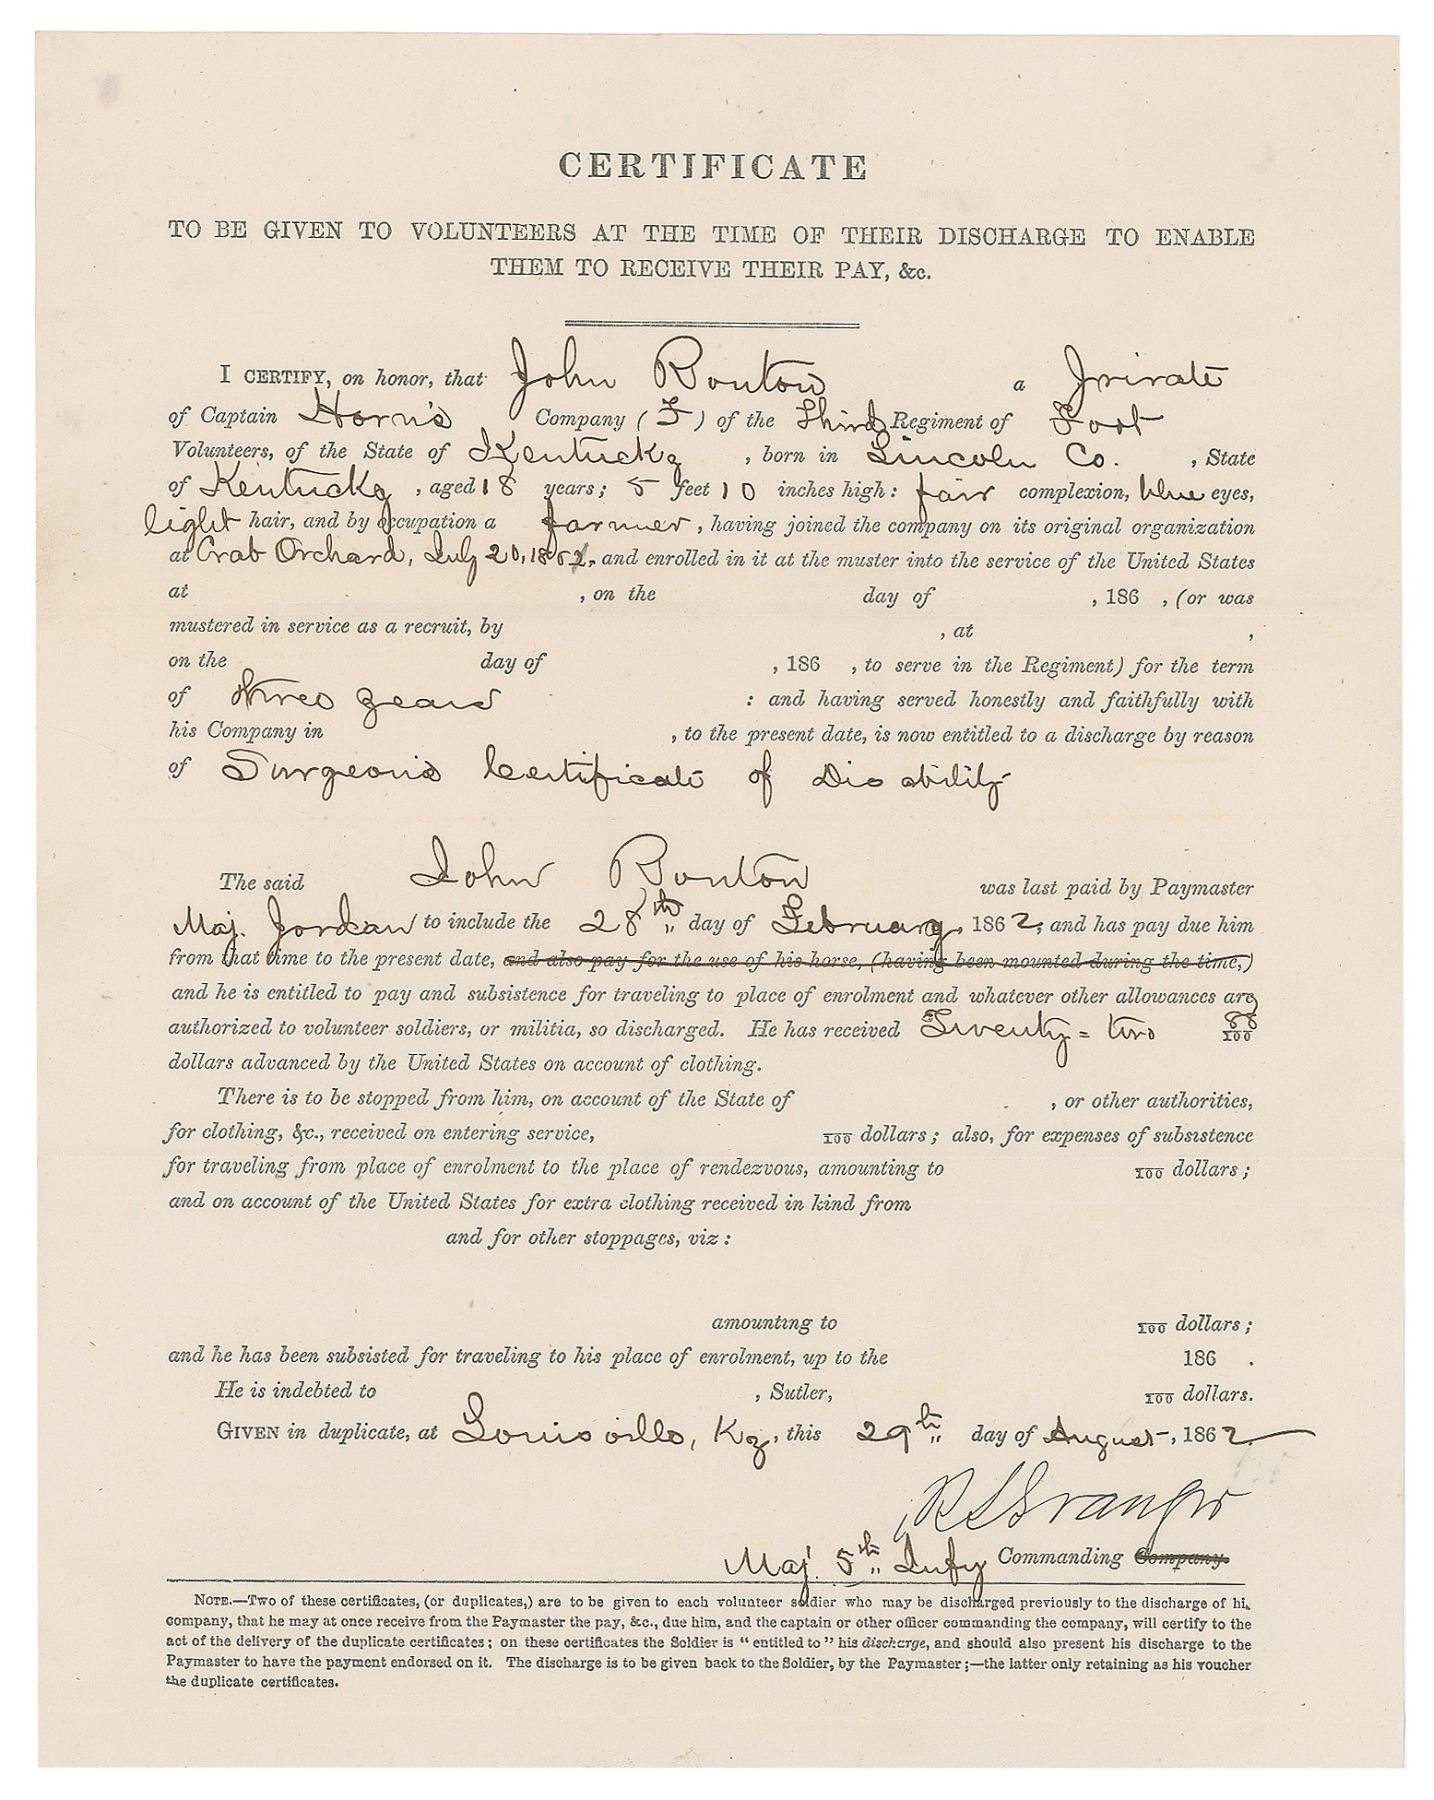 CERTIFICATE
TO BE GIVEN TO VOLUNTEERS AT THE TIME OF THEIR DISCHARGE TO ENABLE
THEM TO RECEIVE THEIR PAY, &c.
I CERTIFY, on honor, that John Bouton a Private
of Captain Horn's Company (F) of the Third Regiment of Foot
Volunteers, of the State of Kentucky , born in Lincoln Co. , State
of Kentucky , aged 18 years; 5 feet 10 inches high: fair complexion, blue eyes,
light hair, and by occupation a farmer, having joined the company on its original organization
at Crab Orchard, July 20, 1861, and enrolled in it at the muster into the service of the United States
at , on the day of , 186 , (or was
mustered in service as a recruit, by , at ,
on the day of , 186 , to serve in the Regiment) for the term
of three years : and having served honestly and faithfully with
his Company in , to the present date, is now entitled to a discharge by reason
of Surgeon's Certificate of Disability
The said John Bouton was last paid by Paymaster
Maj. Jordan to include the 28th day of February, 1862, and has pay due him
from that time to the present date, and also pay for the use of his horse, (having been mounted during the time,)
and he is entitled to pay and subsistence for traveling to place of enrolment and whatever other allowances are
authorized to volunteer soldiers, or militia, so discharged. He has received Twenty=two 88/100
dollars advanced by the United States on account of clothing.
There is to be stopped from him, on account of the State of , or other authorities,
for clothing, &c., received on entering service, /100 dollars; also, for expenses of subsistence
for traveling from place of enrolment to the place of rendezvous, amounting to /100 dollars;
and on account of the United States for extra clothing received in kind from
and for other stoppages, viz:
amounting to /100 dollars;
and he has been subsisted for traveling to his place of enrolment, up to the 186 .
He is indebted to , Sutler, /100 dollars.
GIVEN in duplicate, at Louisville, Ky, this 29th day of August, 1862
R S Granger
Maj. 5th Infy Commanding Company.
NOTE.—Two of these certificates, (or duplicates,) are to be given to each volunteer soldier who may be discharged previously to the discharge of his
company, that he may at once receive from the Paymaster the pay, &c., due him, and the captain or other officer commanding the company, will certify to the
act of the delivery of the duplicate certificates; on these certificates the Soldier is "entitled to" his discharge, and should also present his discharge to the
Paymaster to have the payment endorsed on it. The discharge is to be given back to the Soldier, by the Paymaster;—the latter only retaining as his voucher
the duplicate certificates.